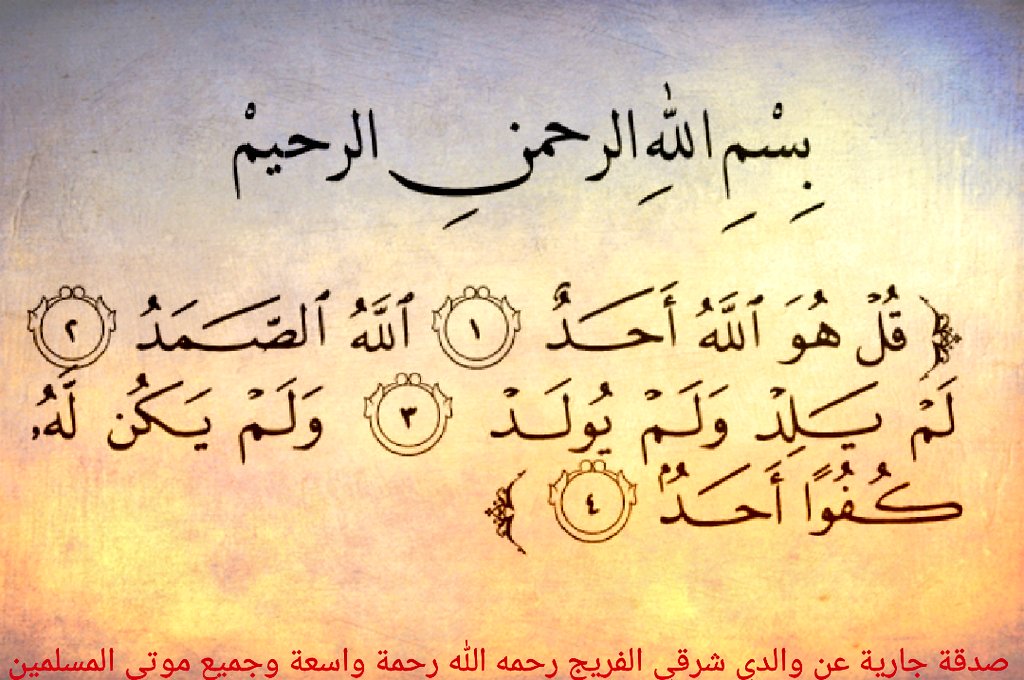 بِسْمِ اللهِ الرحمنِ الرحيمْ
﴿ قُلْ هُوَ ٱللَّهُ أَحَدٌ ١ ٱللَّهُ ٱلصَّمَدُ ٢
لَمْ يَلِدْ وَلَمْ يُولَدْ ٣ وَلَمْ يَكُن لَّهُۥ
كُفُوًا أَحَدٌۢ ٤ ﴾
صدقة جارية عن والدي شرقي الفريج رحمه الله رحمة واسعة وجميع موتى المسلمين